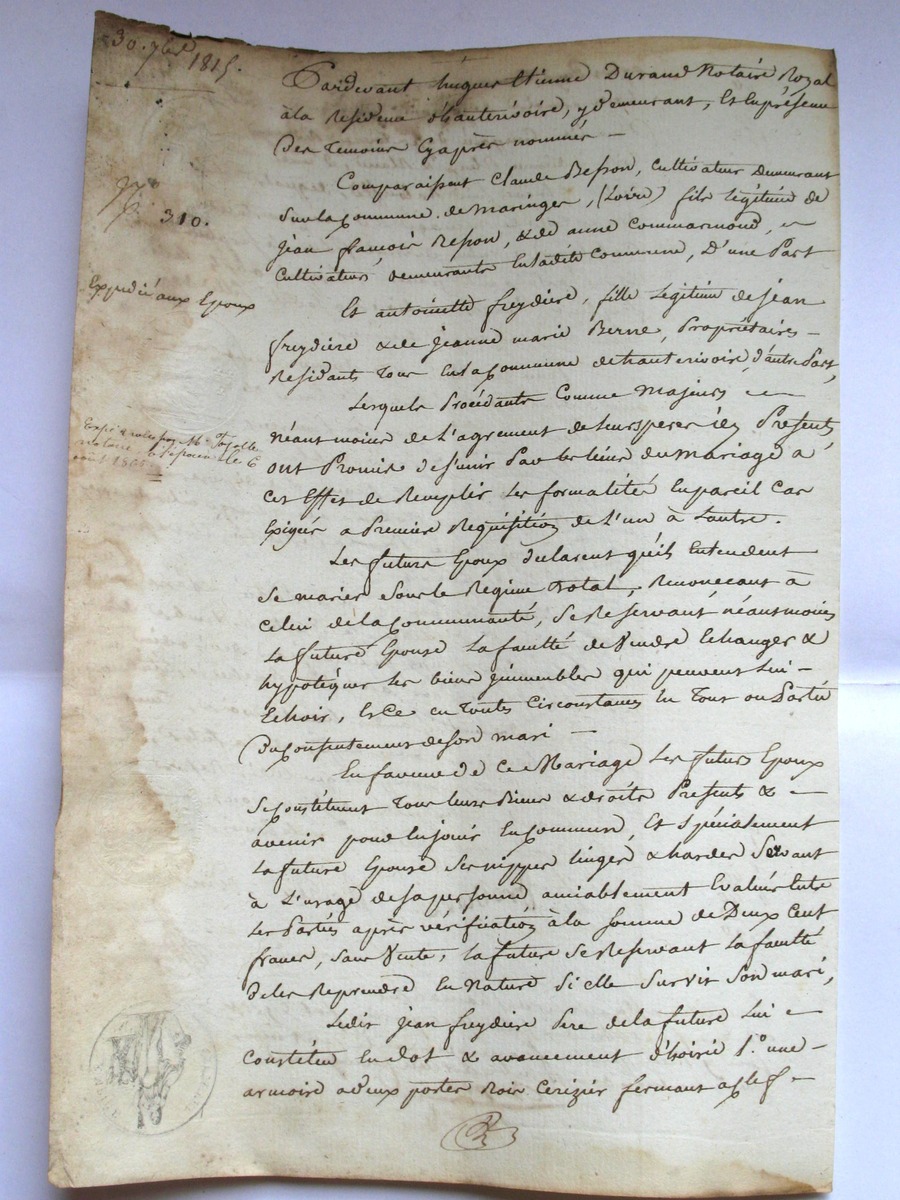 30. 9bre 1815.
310.
Expedié aux Epoux
notaire
Pardevant hugues Etienne Durand Notaire Royal
à la Residence d'hauterivoire, y demeurant, Et En présence
Des temoins Cy après nommés —
Comparaissent Claude Besson, Cultivateur Demeurant
Sur la Commune de maringes, (Loire) fils légitime de
jean françois Besson, & de anne Commarmond,
Cultivateurs demeurants En ladite Commune, D'une Part
Et antoinette freydiere, fille Legitime de jean
freydiere & de jeanne marie Berne, Propriétaires —
Residants tous En la Commune de hauterivoire, d'autre Part,
Lesquels Procédants Comme Majeurs
néantmoins de L'agrement de leurs peres icy Presents,
ont Promis de s'unir Par les liens du mariage à
cet Effet de Remplir les formalités En pareil Cas
Exigées a Premiere Requisition de L'un à Lautre.
Les futurs Epoux declarent qu'ils Entendent
Se marier Sous le Regime Dotal, Renonceant à
Celui de la Communauté, Se Reservant néantmoins
La future Epouse La faculté de Vendre Echanger &
hypotéquer les biens jmmeubles qui peuvent Lui —
Echoir, Et Ce en toutes Circonstances En Tout ou Partie
Du Consentement de Son mari —
En faveur de Ce Mariage Les futurs Epoux
Se Constituent tous leurs Biens & droits Presents & —
avenir pour En jouir En Commun, Et Spécialement
La future Epouse Ses nippes linges & hardes Servant
à L'usage de sa personne amiablement Evalués Entre
Les Parties après vérification à la Somme de Deux Cent
francs, Sans Vente, La future Se Reservant La faculté
De les Reprendre En Nature Si elle Survit Son mari,
Ledit jean freydiere Pere de la future Lui
Constitue En dot & avancement d'hoirie 1.° une —
armoire a deux portes Bois Cerizier fermant a clef —